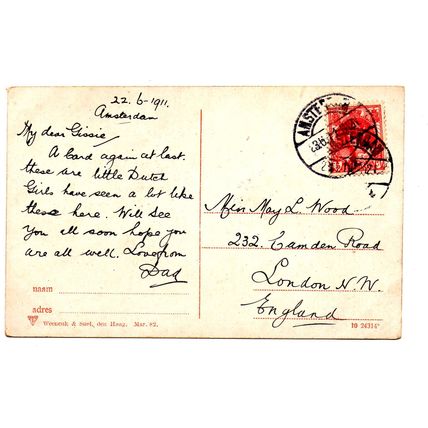 22.6-1911.
Amsterdam
My dear Gissie/
A Card again at last.
these are little Dutch
Girls have seen a lot like
these here. Will see
You all soon hope you
are all well. Love from
Dad
naam
adres
Weenenk & Snel, den Haag. Mar. 82.
Miss May L. Wood
232. Camden Road
London N.W.
England
AMSTERDAM
10 24314